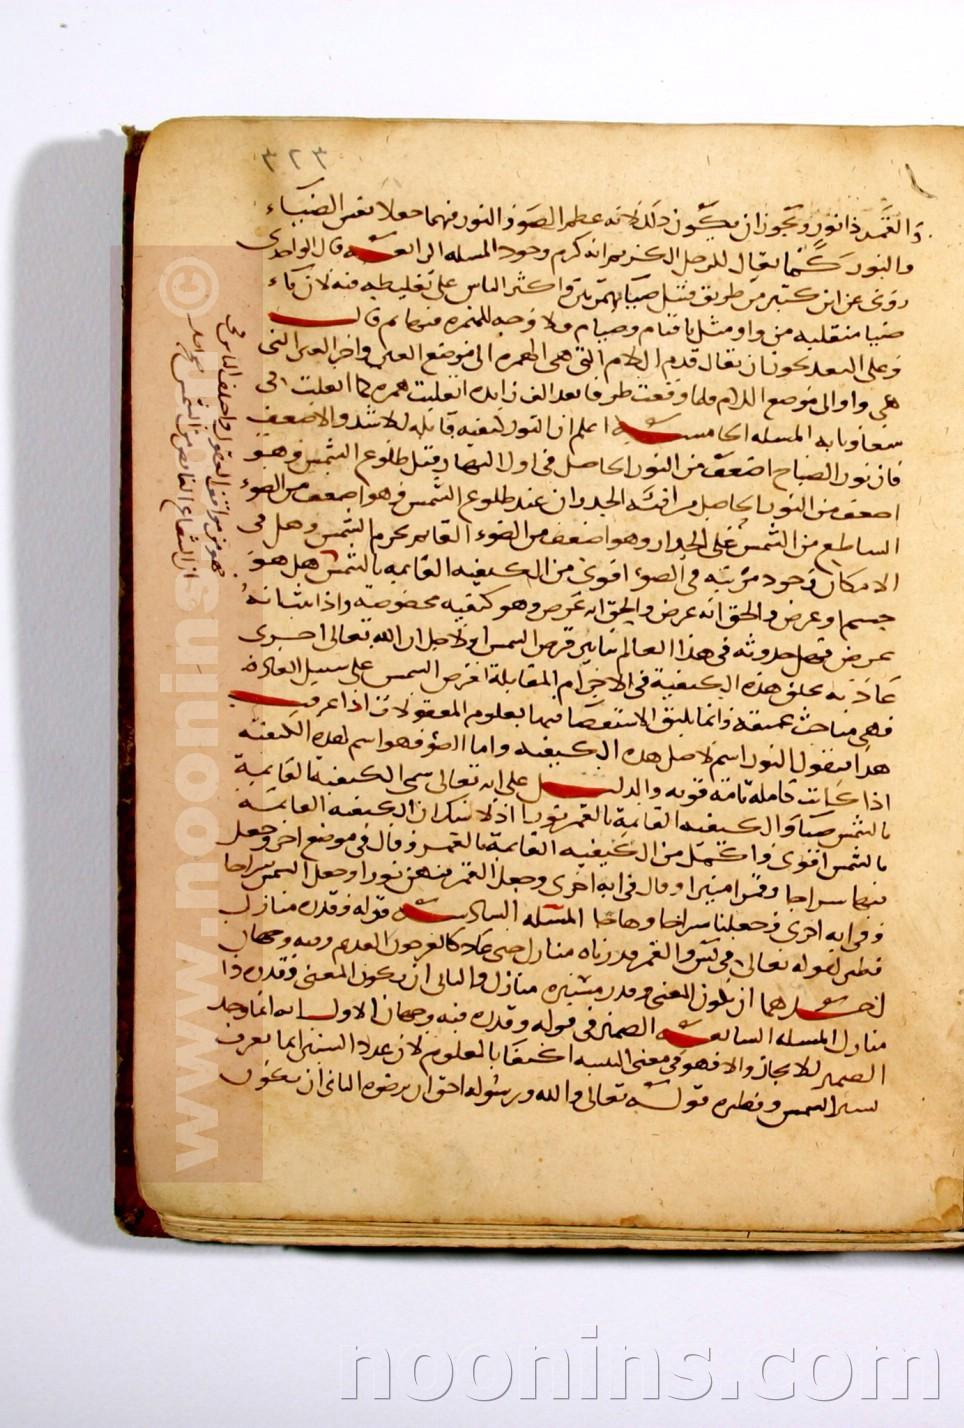 ٣٢٣
ذا القمر ذا نور ويجوز ان يكون ذلك لانه عظم الضوء والنور فيهما جعلا نفس الضياء
والنور كما يقال للرجل الكريم انه كرم وجود المسله الرابعة قال الواحدى
روى عن ابن كثير من طريق قنبل ضياء بهمزتين واكثر الناس على تغليطه فيه لان ياء
ضيا منقلبه من واو مثل ياء قيام وصيام ولا وجه للهمزه فيها ثم قال
وعلى البعد يجوز ان يقال قدم اللام التى هى الهمزه الى موضع العين واخر العين التى
هى واو الى موضع اللام فلما وقعت طرفا بعد الف زايده انقلبت همزه كما انقلبت فى
سقا وبابه المسله الخامسة اعلم ان النور كيفيه قابله للاشد والاضعف
فان نور الصباح اضعف من النور الحاصل فى اول النهار قبل طلوع الشمس وهو
اضعف من النور الحاصل فى افنية الجدران عند طلوع الشمس وهو اضعف من الضوء
الساطع من الشمس على الجدار وهو اضعف من الضوء القايم بجرم الشمس وهل فى
الامكان وجود مرتبه فى الضوء اقوى من الكيفيه القايمه بالشمس هل هو
جسم او عرض والحق انه عرض والحق انه عرض وهو كيفيه مخصوصه واذا ثبت انه
عرض فهل حدوثه فى هذا العالم بتاثير قرص الشمس او لاجل ان الله تعالى اجرى
عادته بخلق هذه الكيفية فى الاجرام المقابلة لقرص الشمس على سبيل العادة
فهى مباحث عميقه وانما يليق الاستقصا فيها بعلوم المعقولات اذا عرفت
هذا فنقول النور اسم لاصل هذه الكيفيه واما الضوء فهو اسم لهذه الكيفيه
اذا كانت كاملة تامة قويه والدليل على انه تعالى سمى الكيفية القايمة
بالشمس ضيا والكيفيه القايمة بالقمر نورا اذ لا شك ان الكيفيه القايمة
بالشمس اقوى واكمل من الكيفيه القايمة بالقمر وقال فى موضع اخر وجعل
فيها سراجا وقمرا منيرا وقال فى ايه اخرى وجعل القمر فيهن نورا وجعل الشمس سراجا
وفى ايه اخرى وجعلنا سراجا وهاجا المسله السادسة قوله وقدره منازل
نظيره قوله تعالى فى يس والقمر قدرناه منازل حتى عاد كالعرجون القديم وفيه وجهان
احدهما ان يكون المعنى وقدر مسيره منازل والثانى ان يكون المعنى وقدره ذا
منازل المسله السابعة الضمير فى قوله وقدره فيه وجهان الاول انه انما وحد
الضمير للايجاز والا فهو فى معنى التثنيه اكتفا بالمعلوم لان عدد السنين انما يعرف
بسير الشمس ونظيره قوله تعالى والله ورسوله احق ان يرضوه الثانى ان يكون
واختلف الناس فى
ان الشعاع الفايض من الشمس
www.noonins ©
noonins.com